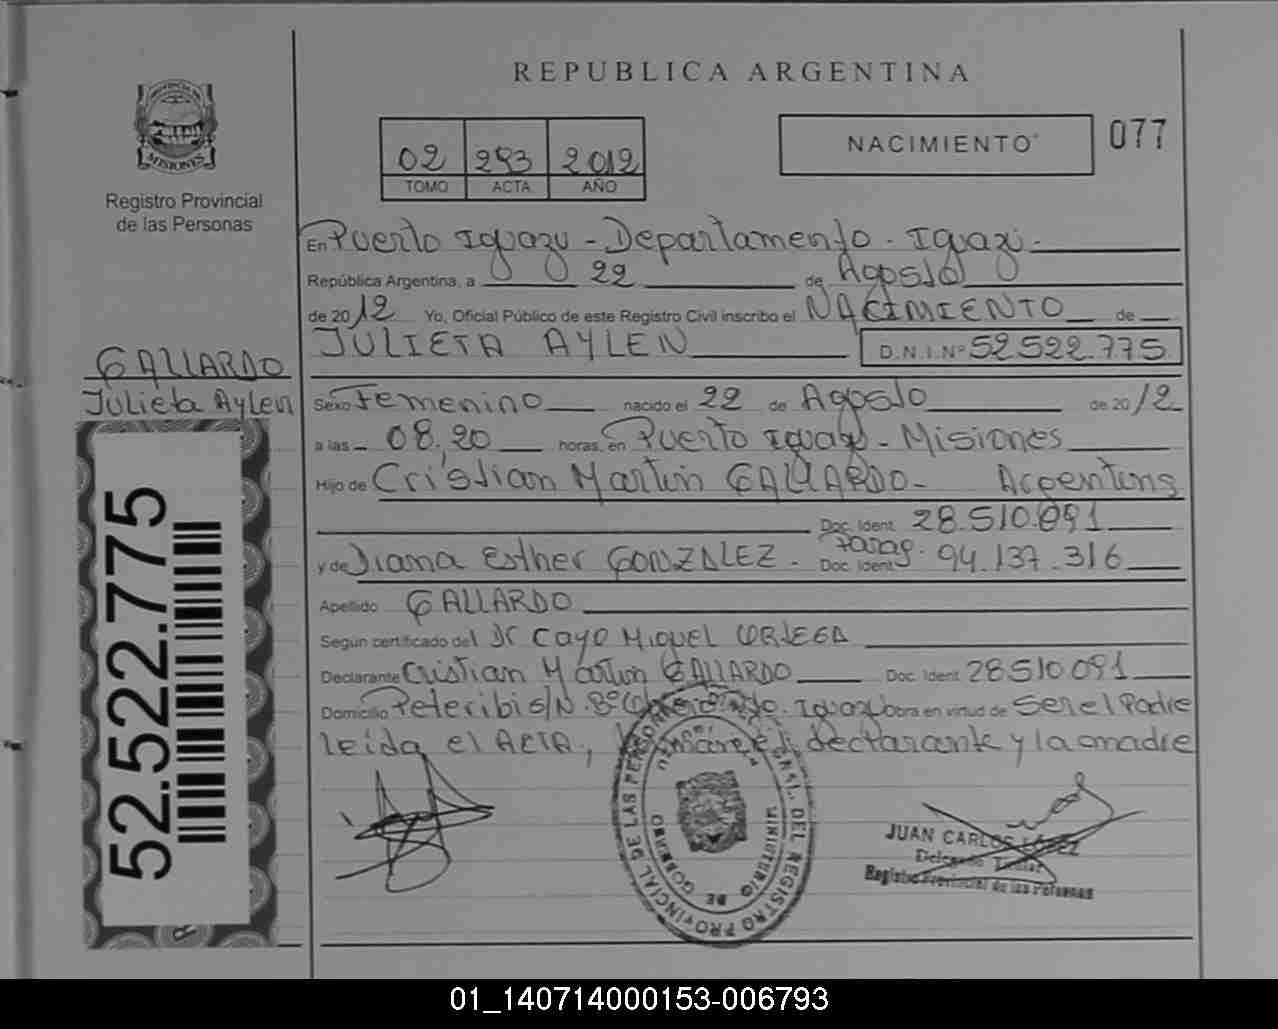 REPUBLICA ARGENTINA
PROVINCIA DE
MISIONES
Registro Provincial
de las Personas
02 293 2012
TOMO ACTA AÑO
NACIMIENTO
077
En Puerto Iguazu - Departamento - Iguazu -
República Argentina, a 22 de Agosto
de 2012 Yo, Oficial Público de este Registro Civil inscribo el NACIMIENTO de
JULIETA AYLEN D.N.I. Nº 52.522.775
GALLARDO
Julieta Aylen
Sexo Femenino nacido el 22 de Agosto de 2012
a las - 08,20 horas, en Puerto Iguazu - Misiones
Hijo de Cristian Martin GALLARDO - Argentino
Doc. Ident. 28.510.091
y de Diana Esther GONZALEZ - Parag. Doc. Ident. 94.137.316
Apellido GALLARDO
Según certificado del Dr Cayo Miguel ORTEGA
Declarante Cristian Martin GALLARDO Doc. Ident. 28510.091
Domicilio Peteribi s/N. Bº Iguazu Obra en virtud de Ser el Padre
leida el ACTA, el declarante y la madre
52.522.775
REGISTRO PROVINCIAL DE LAS PERSONAS
MINISTERIO DE GOBIERNO
JUAN CARLOS LÓPEZ
Delegado Titular
Registro Provincial de las Personas
01_140714000153-006793